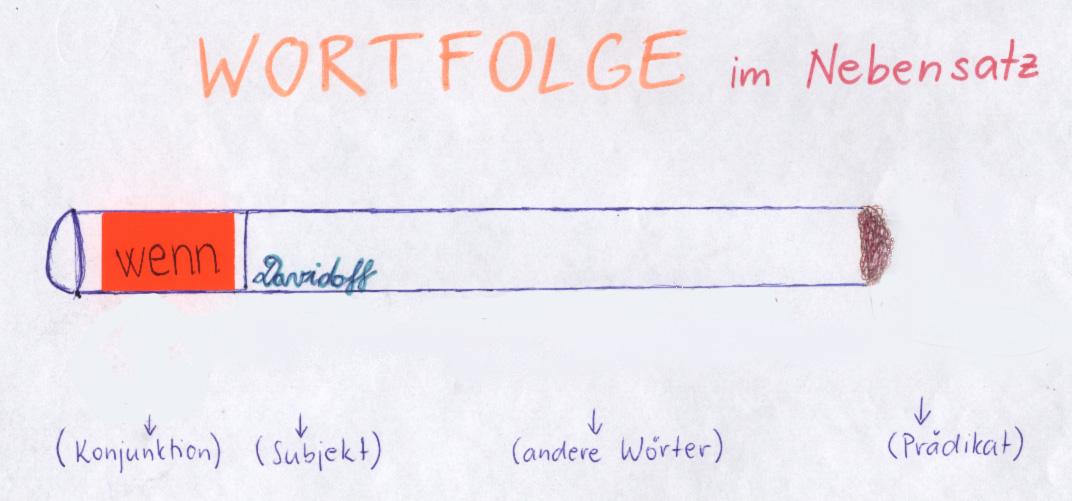 WORTFOLGE im Nebensatz
wenn Davidoff
(Konjunktion) (Subjekt) (andere Wörter) (Prädikat)